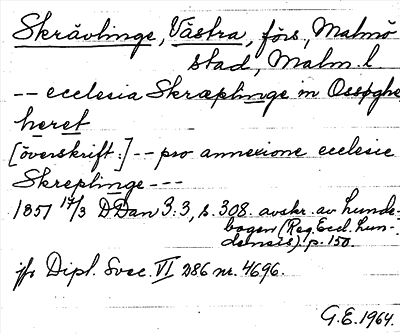 Skrävlinge, Västra, förs., Malmö
stad, Malm. l.
-- ecclesia Skræplinge in Ossøghe
heret
[överskrift:] -- pro annexione ecclesie
Skreplinge ---
1351 17/3 DDan 3:3, s. 308. avskr. av Lunde-
bogen (Reg. Eccl. Lun-
densis) p. 150.
jfr Dipl. Svec. VI 286 nr. 4696.
G.E. 1964.